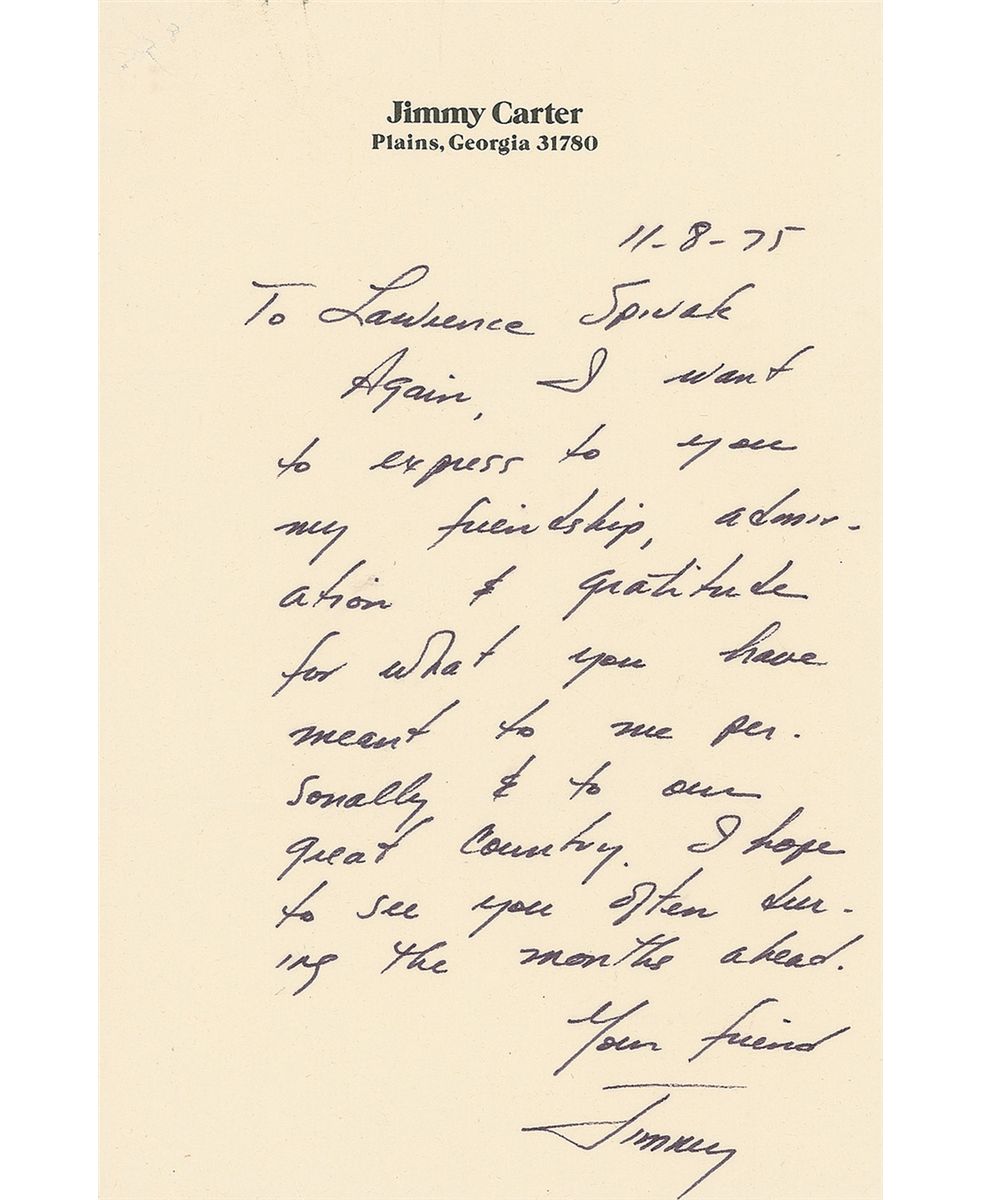 Jimmy Carter
Plains, Georgia 31780
11-8-75
To Lawrence Spivak
Again, I want
to express to you
my friendship, admir-
ation & gratitude
for what you have
meant to me per-
sonally & to our
great country. I hope
to see you often dur-
ing the months ahead.
Your friend
Jimmy